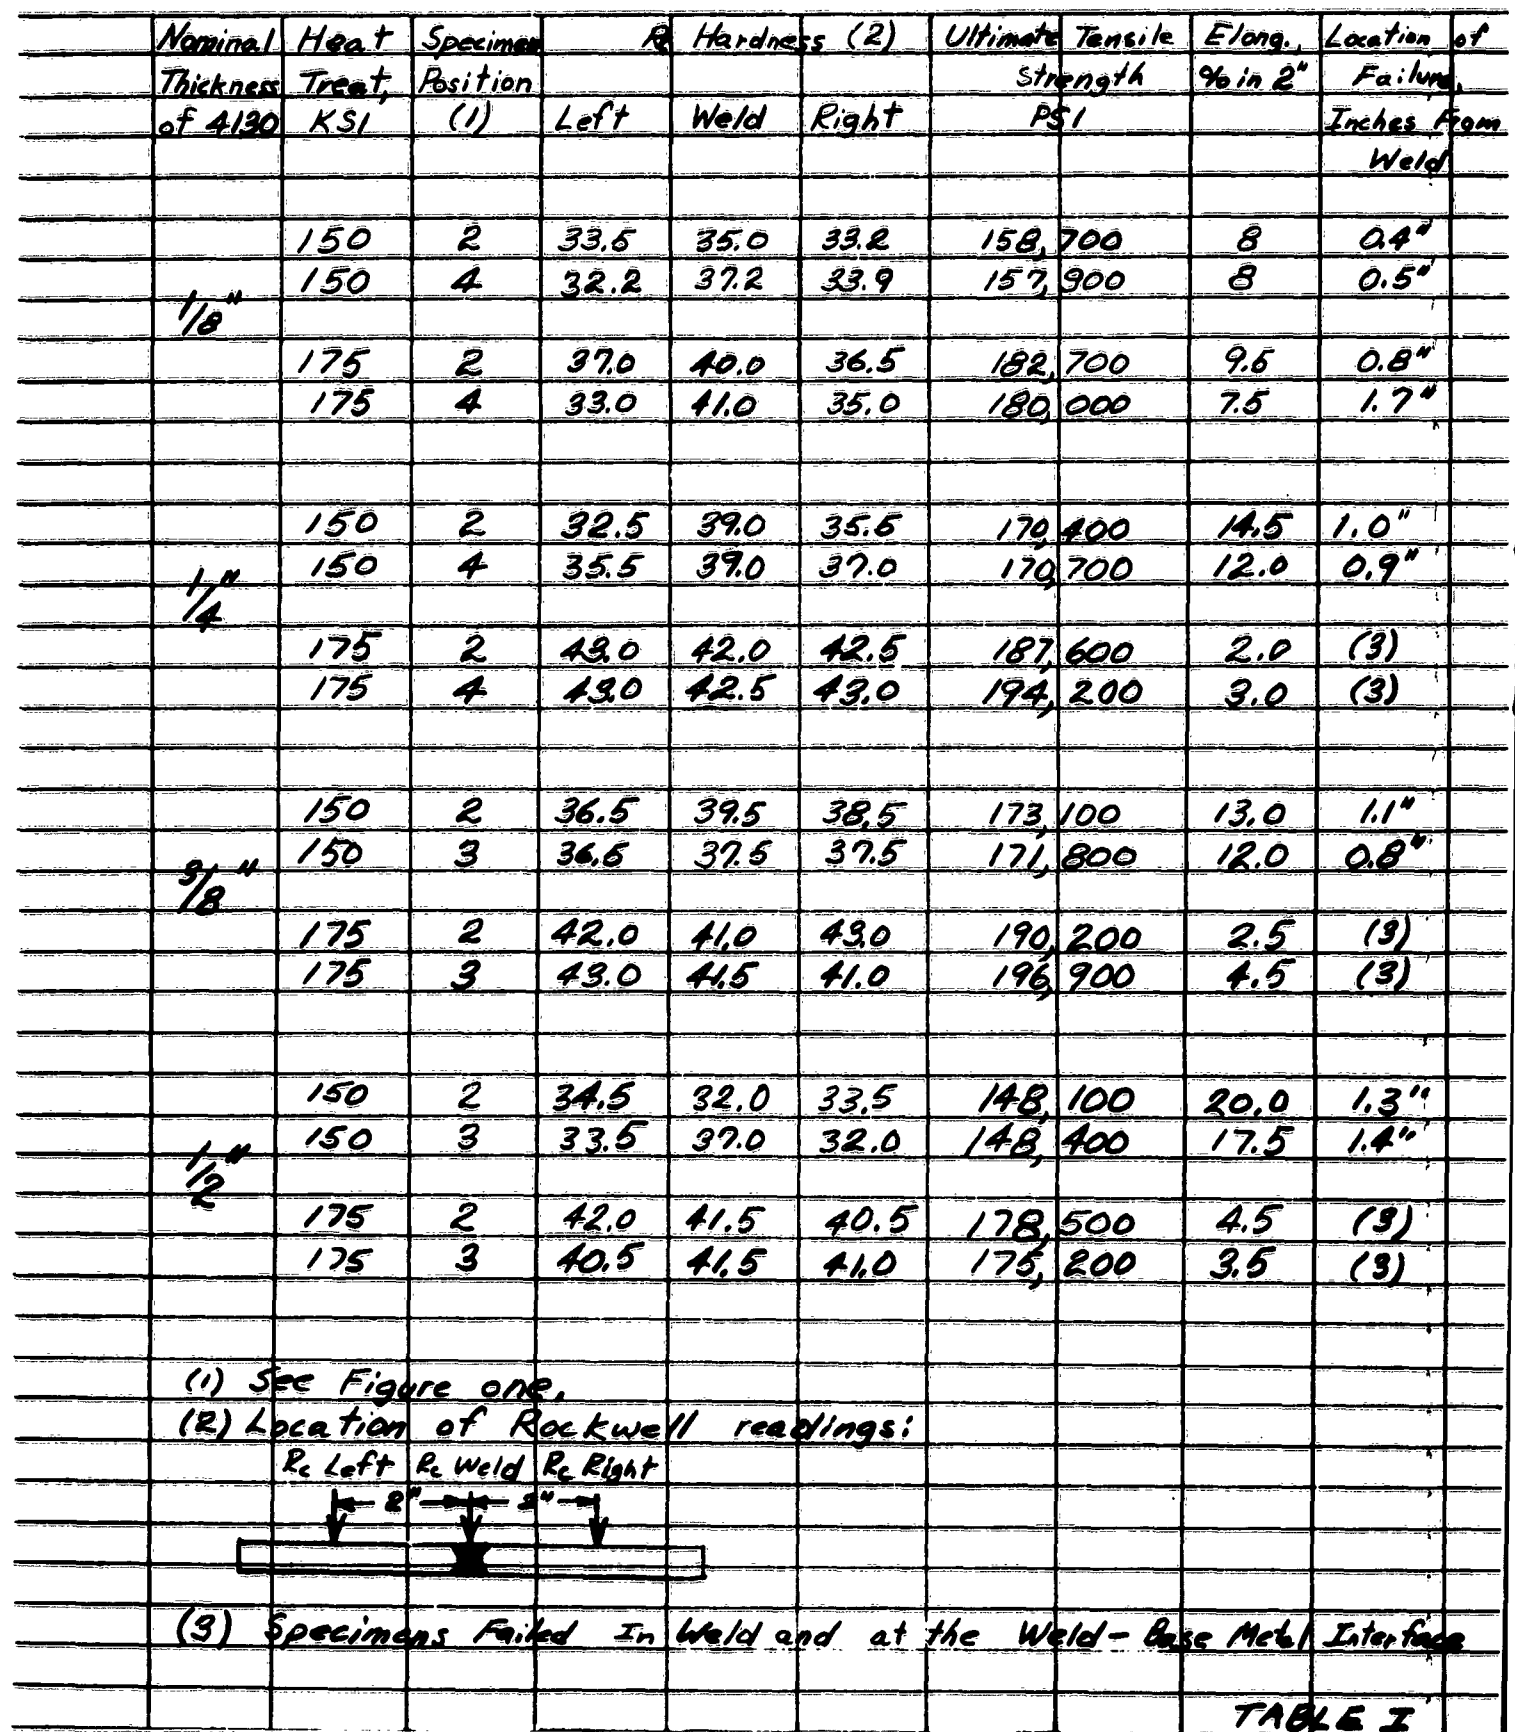 Nominal Heat Specimen Rc Hardness (2) Ultimate Tensile Elong., Location of
Thickness Treat, Position Strength % in 2" Failure,
of 4130 KSI (1) Left Weld Right PSI Inches From
Weld
150 2 33.5 35.0 33.2 158,700 8 0.4"
150 4 32.2 37.2 33.9 157,900 8 0.5"
1/8"
175 2 37.0 40.0 36.5 182,700 9.5 0.8"
175 4 33.0 41.0 35.0 180,000 7.5 1.7"
150 2 32.5 39.0 35.5 170,400 14.5 1.0"
150 4 35.5 39.0 37.0 170,700 12.0 0.9"
1/4"
175 2 43.0 42.0 42.5 187,600 2.0 (3)
175 4 43.0 42.5 43.0 194,200 3.0 (3)
150 2 36.5 39.5 38.5 173,100 13.0 1.1"
150 3 36.5 37.5 37.5 171,800 12.0 0.8"
3/8"
175 2 42.0 41.0 43.0 190,200 2.5 (3)
175 3 43.0 41.5 41.0 196,900 4.5 (3)
150 2 34.5 32.0 33.5 148,100 20.0 1.3"
150 3 33.5 37.0 32.0 148,400 17.5 1.4"
1/2"
175 2 42.0 41.5 40.5 178,500 4.5 (3)
175 3 40.5 41.5 41.0 175,200 3.5 (3)
(1) See Figure one.
(2) Location of Rockwell readings:
Rc Left Rc Weld Rc Right
2" 2"
(3) Specimens Failed In Weld and at the Weld-Base Metal Interface
TABLE I